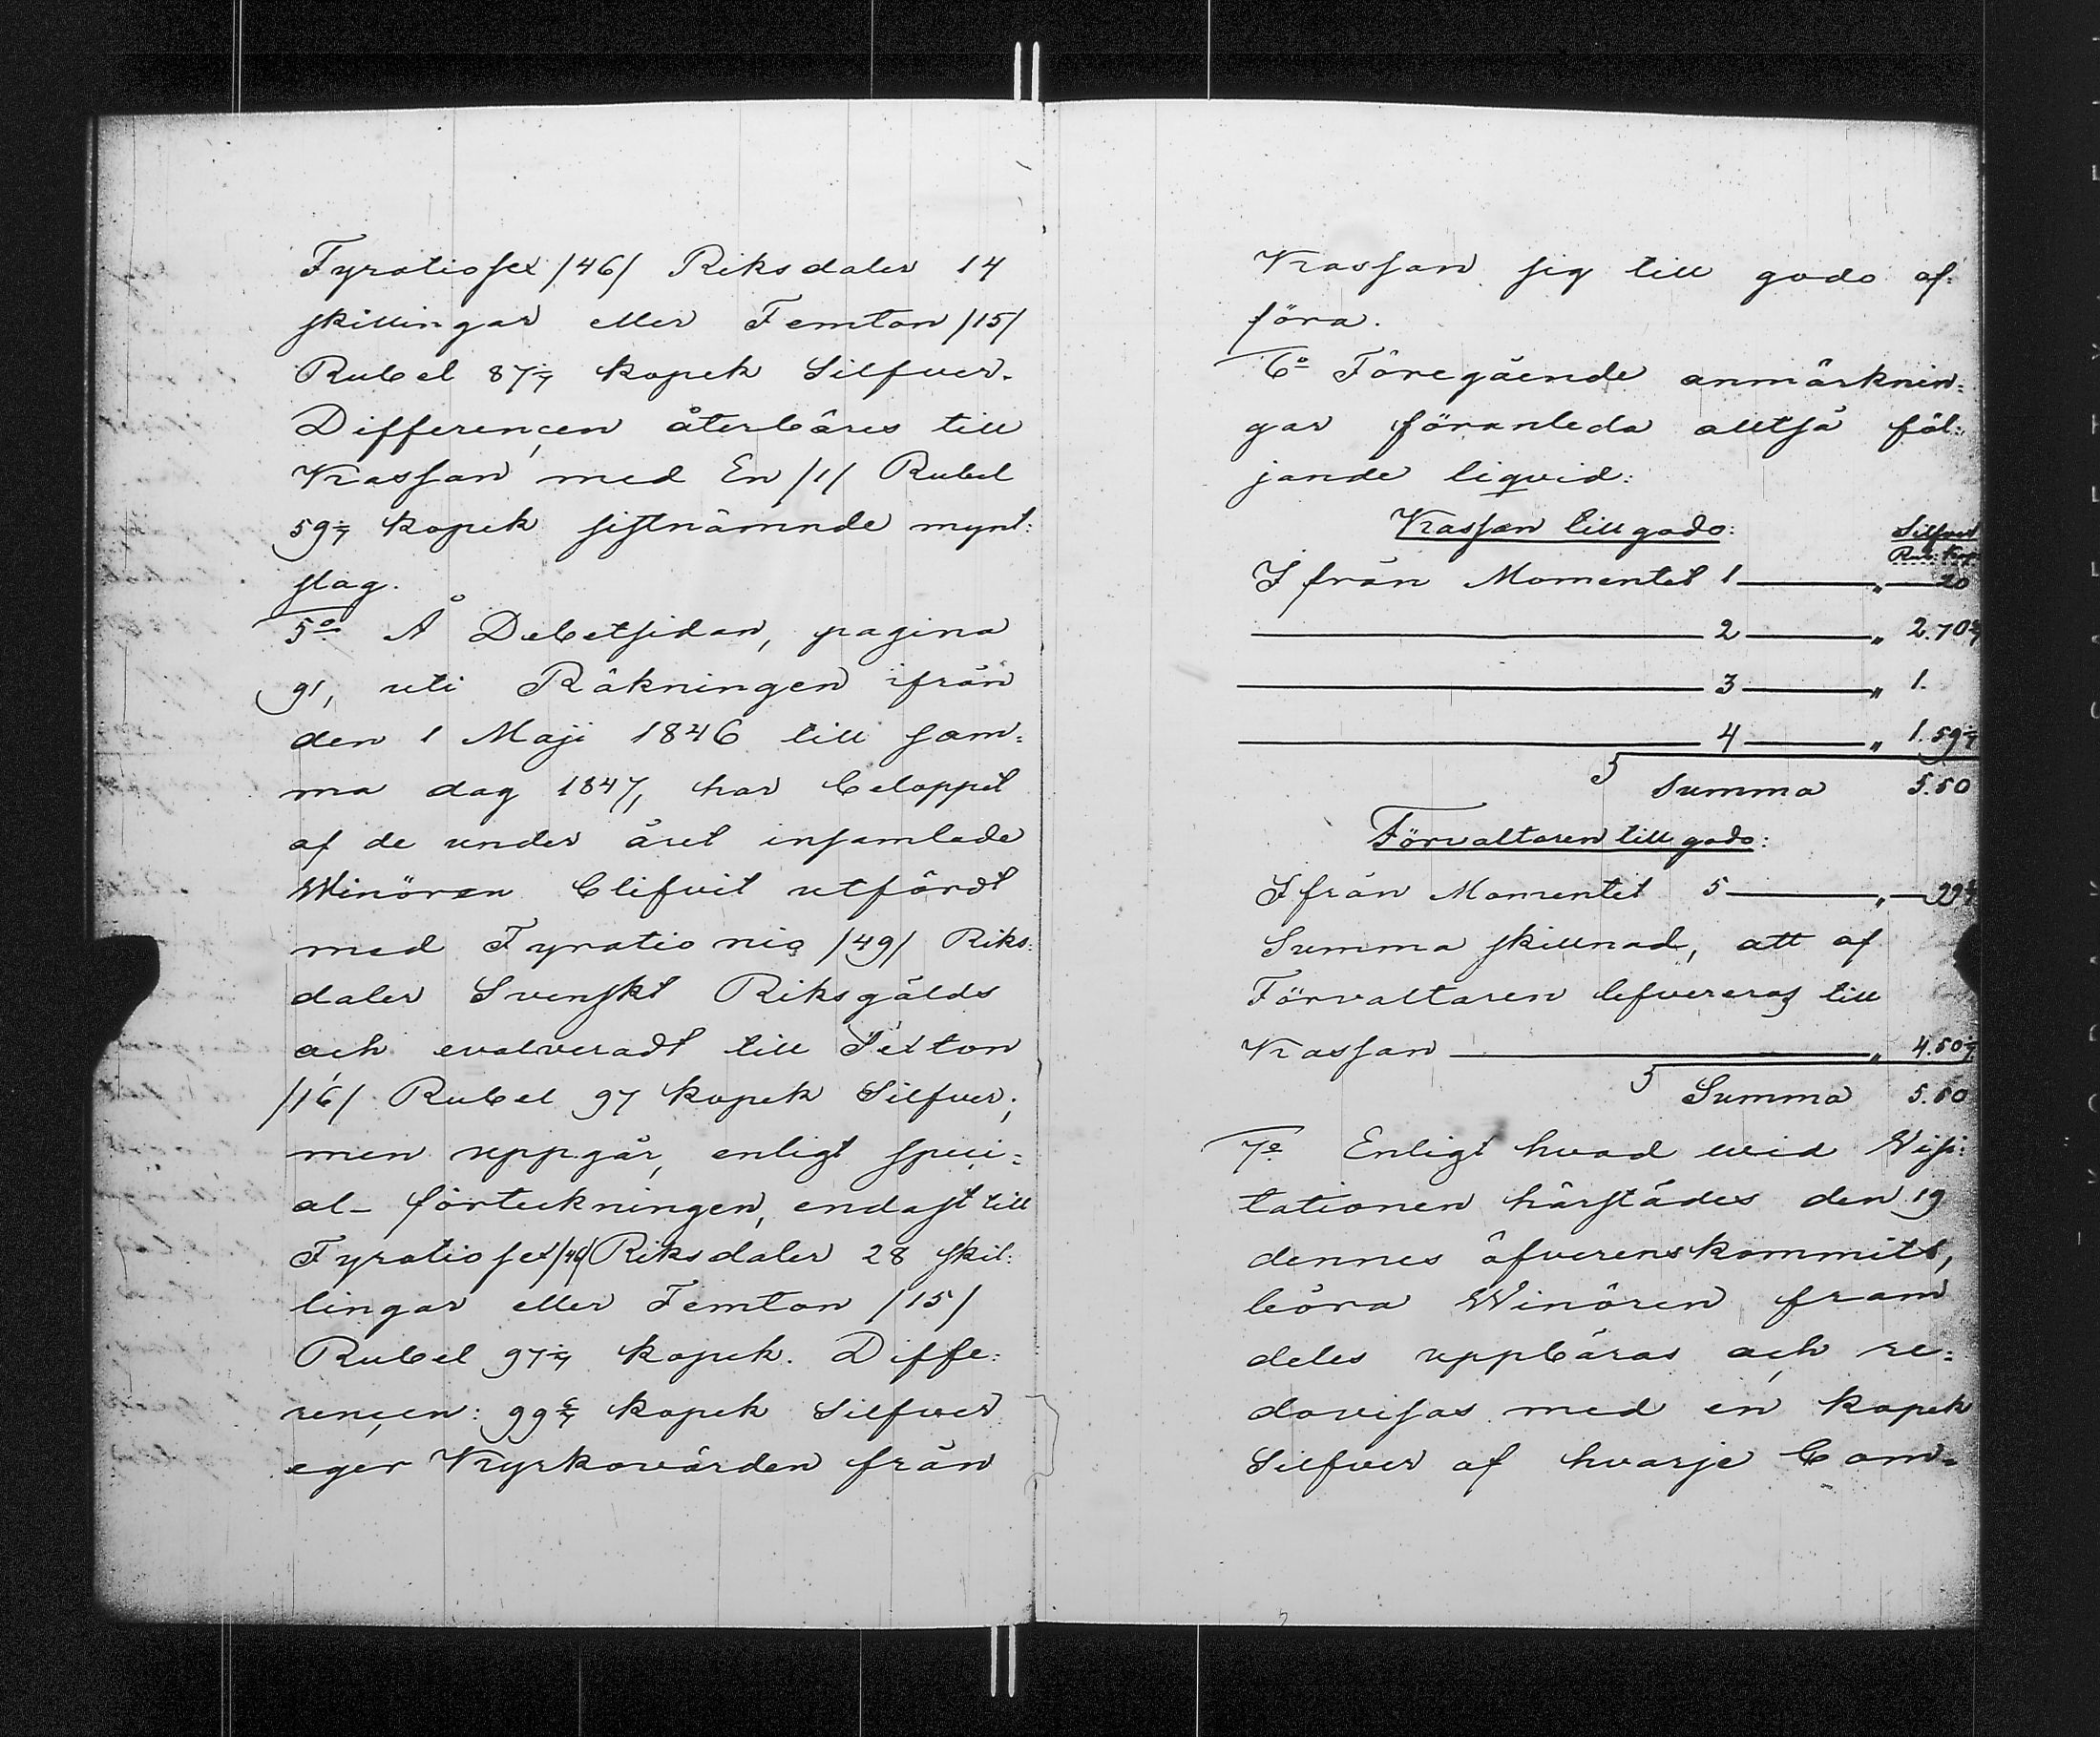 Fyratiosex /46/ Riksdaler 14
skillingar eller Femton /15/
Rubel 87 1/7 kopek Silfver.
Differencen återbäres till
Kassan med En /1/ Rubel
59 2/7 kopek sistnämnde mynt:
slag.
5o Å Debetsidan, pagina
91, uti Räkningen ifrån
den 1 Maji 1846 till sam:
ma dag 1847, har beloppet
af de under året insamlade
Winören blifvit utfördt
med Fyratio nio /49/ Riks:
daler Svenskt Riksgälds
och evalveradt till Sexton
/16/ Rubel 97 kopek Silfver;
men uppgår, enligt speci:
al-förteckningen, endast till
Fyratiosex /46/ Riksdaler 28 skil:
lingar eller Femton /15/
Rubel 97 1/7 kopek. Diffe:
rencen: 99 6/7 kopek Silfver
eger Kyrkovärden från
Kassan sig till godo af:
föra.
6o Föregående anmärknin:
gar föranleda alltså föl:
jande liqvid:
Kassan till godo:
Silfver
Rub: Kop
Ifrån Momentet 1 " 20
2 " 2.70
3 " 1.
4 " 1.59 2/7
Summa 5.50
Förvaltaren till godo:
Ifrån Momentet 5 " 99 6/7
Summa skillnad, att af
Förvaltaren lefvereras till
Kassan " 4.50 1/7
Summa 5.50
7o Enligt hvad wid Visi:
tationen härstädes den 19
dennes öfverenskommits,
böra Winören fram
deles uppbäras och re:
dovisas med en kopek
Silfver af hvarje Com=